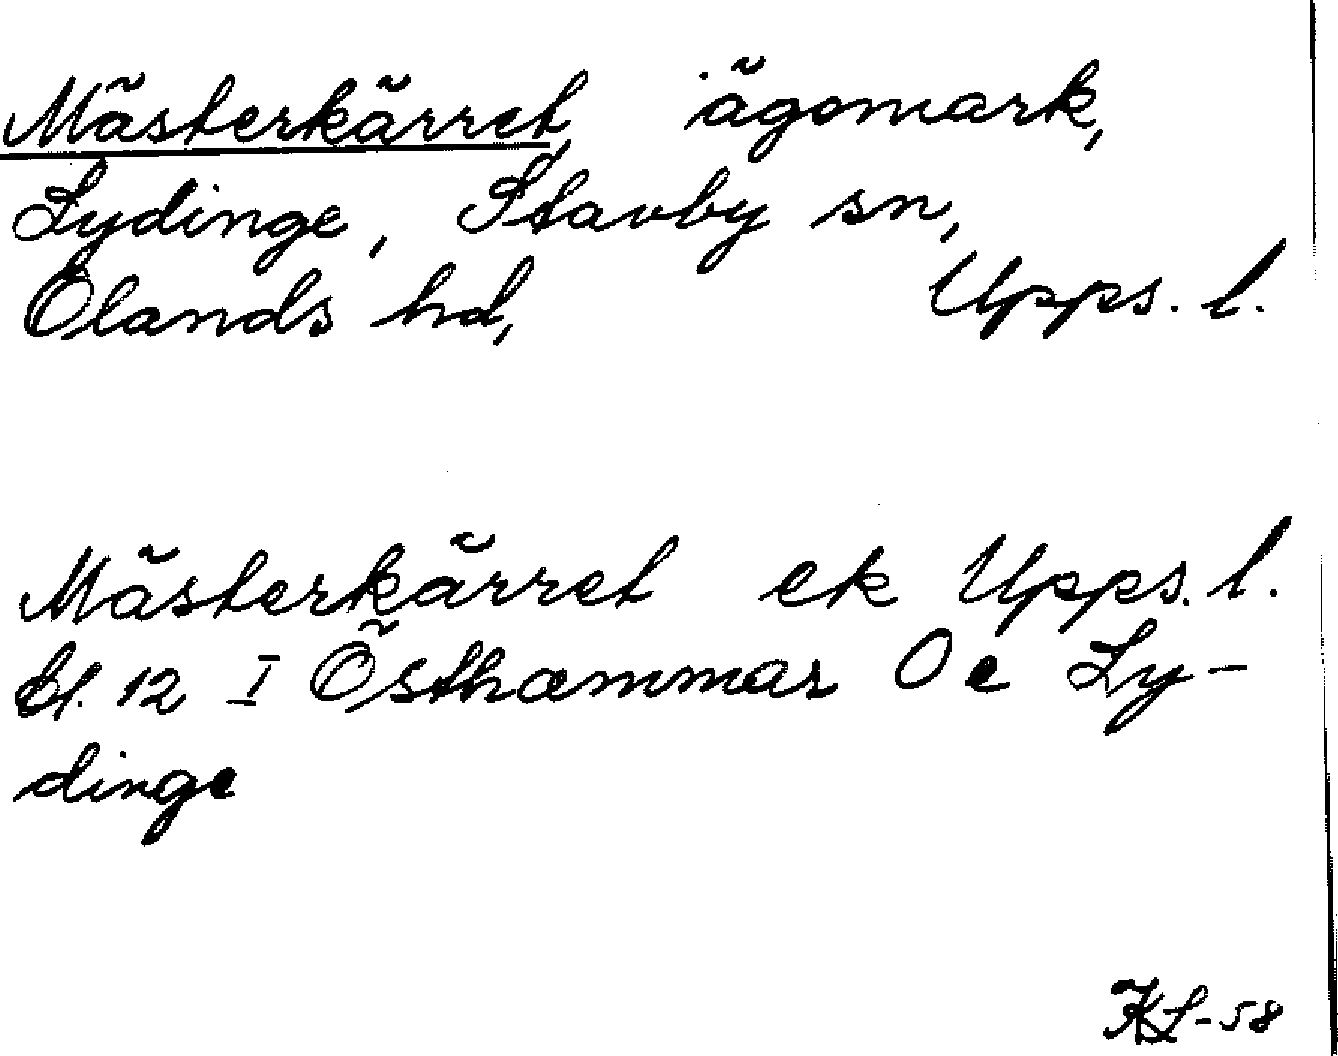 Mästerkärret, ägomark,
Lydinge, Stavby sn,
Olands hd, Upps. l.
Mästerkärret ek Upps. l.
bl. 12 I Östhammar Oe Ly-
dinge
KL-58